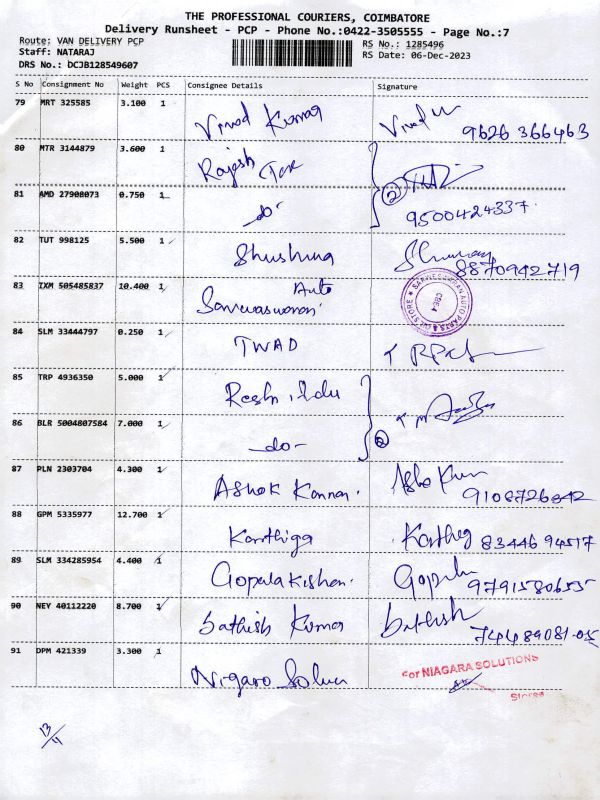 THE PROFESSIONAL COURIERS, COIMBATORE
Delivery Runsheet - PCP - Phone No.:0422-3505555 - Page No.:7
Route: VAN DELIVERY PCP
RS No.: 1285496
Staff: NATARAJ
RS Date: 06-Dec-2023
DRS No.: DCJB128549607
S No Consignment No Weight PCS Consignee Details Signature
79 MRT 325585 3.100 1 Vinod Kumar Vinod 9626366463
80 MTR 3144879 3.600 1 Rajesh
81 AMD 27908073 0.750 1 -do- 2 9500424337
82 TUT 998125 5.500 1 8870942719
83 IXM 505485837 10.400 1 Auto
84 SLM 33444797 0.250 1 TWAD
85 TRP 4936350 5.000 1
86 BLR 5004807584 7.000 1 -do- 2
87 PLN 2303704 4.300 1 Ashok Kannan.
88 GPM 5335977 12.700 1 Karthiga 8344694517
89 SLM 334285954 4.400 1 Gopalakishan.
90 NEY 40112220 8.700 1 Sathish Kumar Sathish
91 DPM 421339 3.300 1 For NIAGARA SOLUTIONS
Stores
13/4